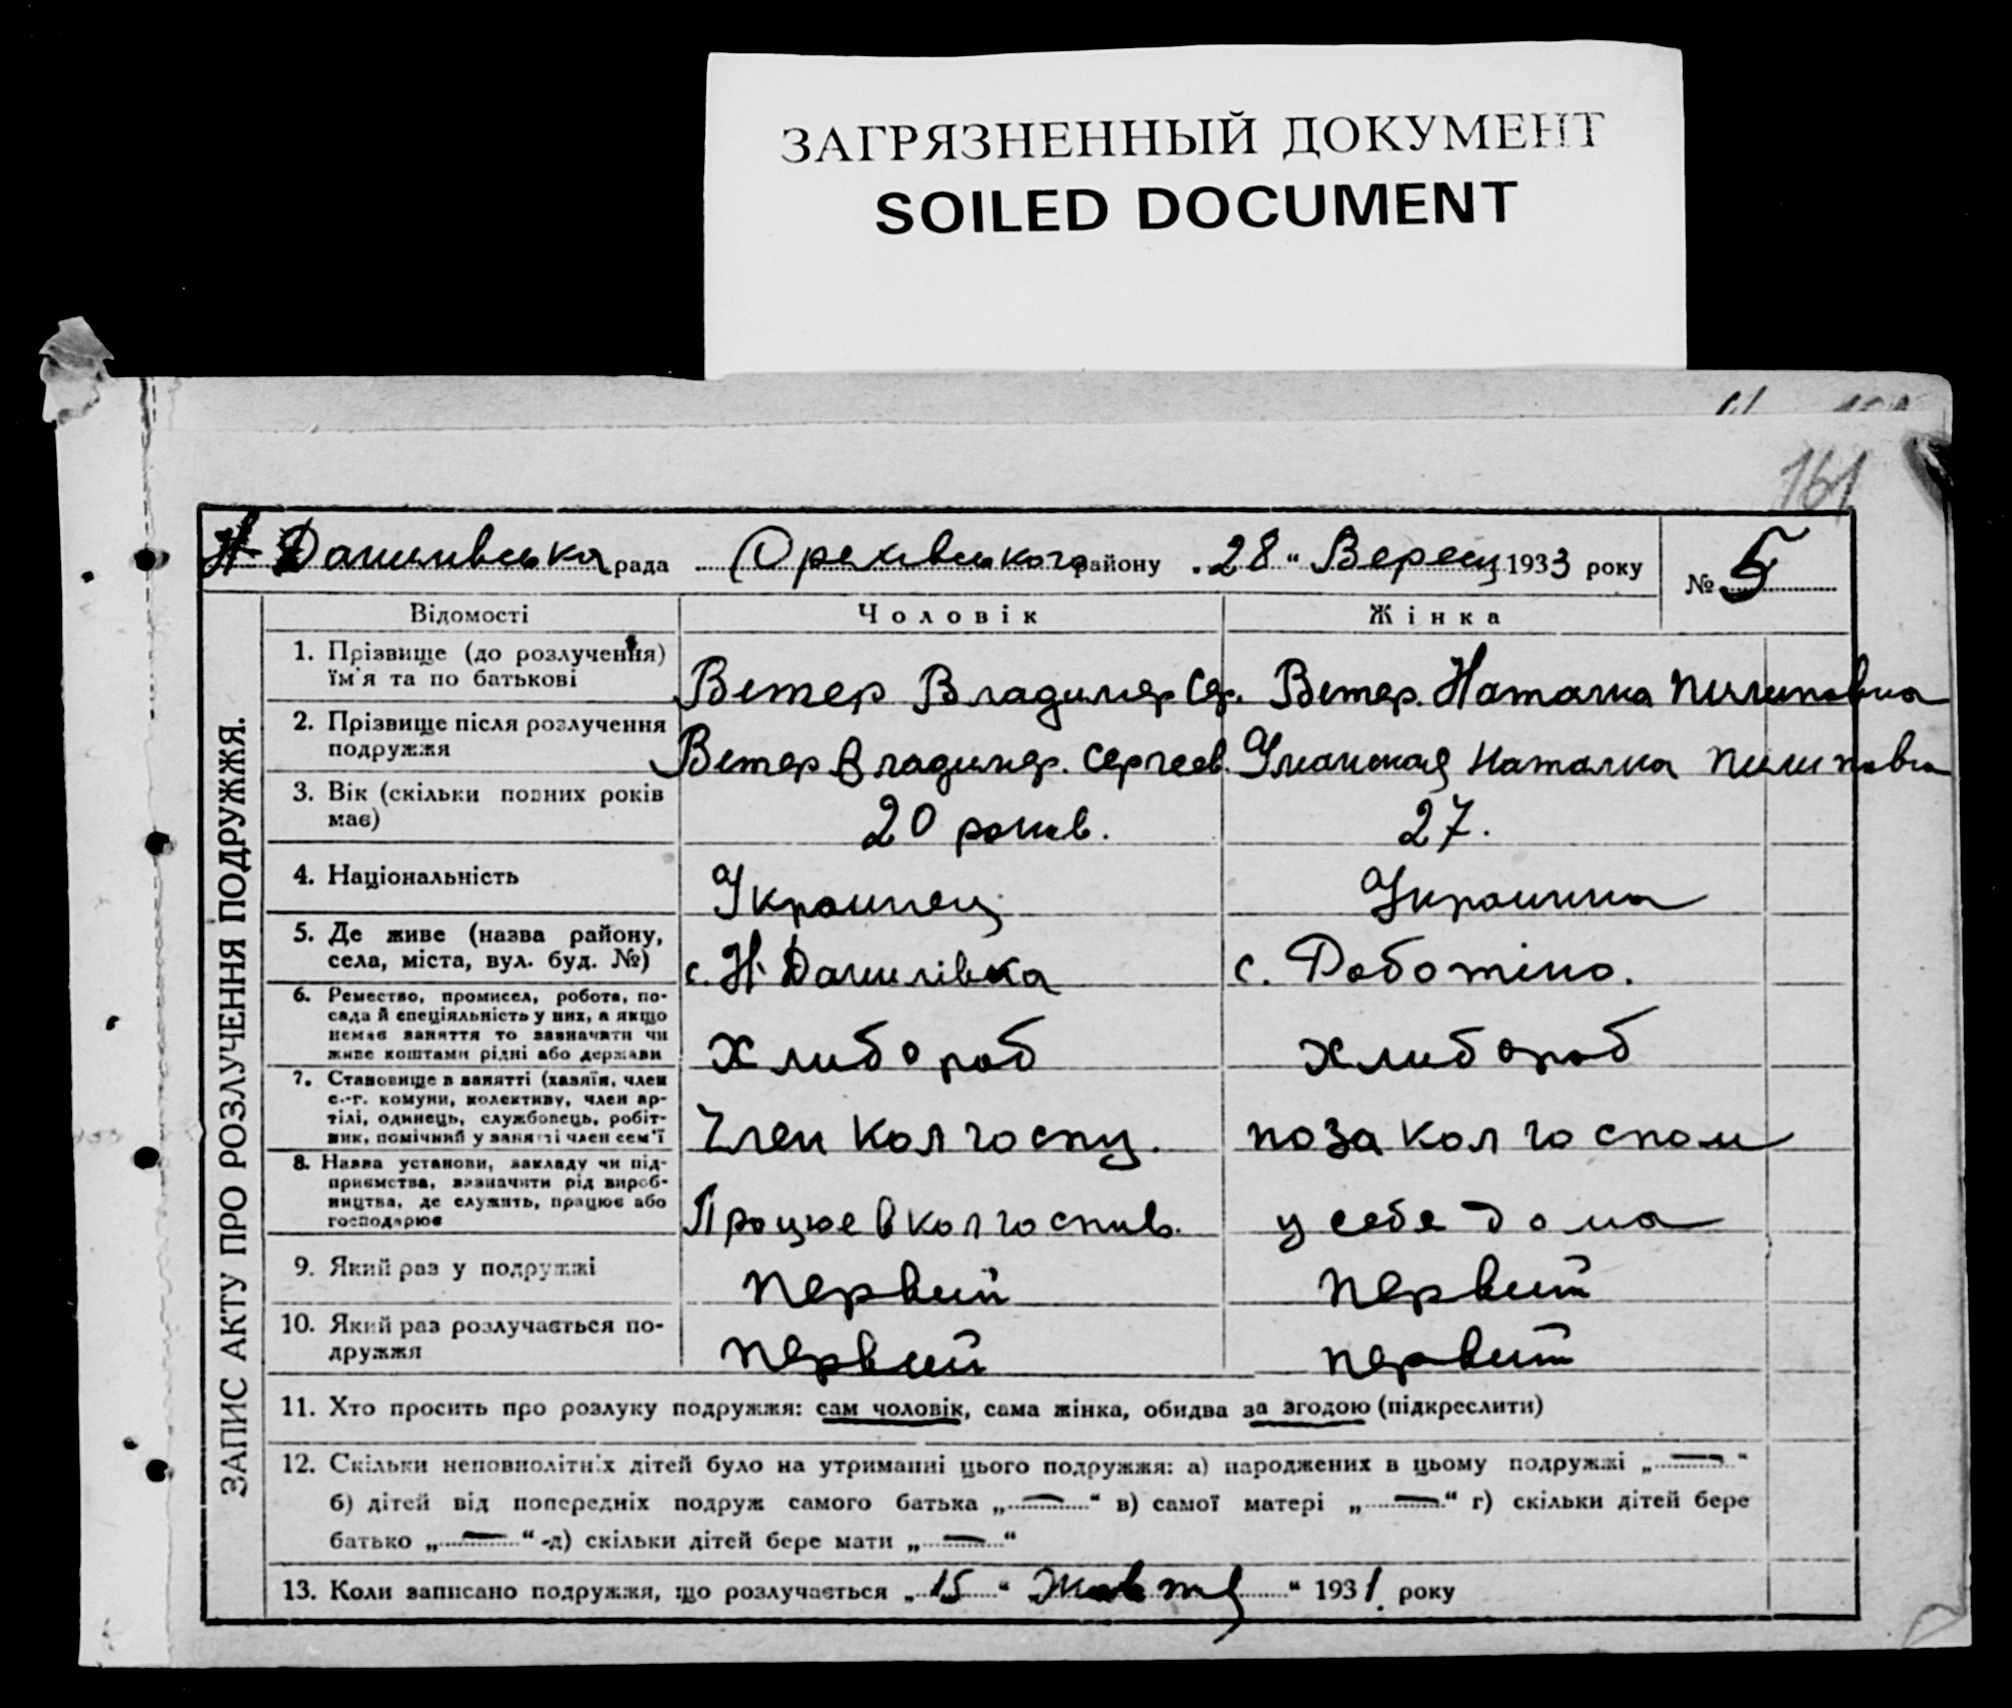 ЗАГРЯЗНЕННЫЙ ДОКУМЕНТ
SOILED DOCUMENT
161
Н-Даниливська рада Орехівського району „28“ Вересц 1933 року № 5
ЗАПИС АКТУ ПРО РОЗЛУЧЕННЯ ПОДРУЖЖЯ.
Відомості Чоловік Жінка
1. Прізвище (до розлучення) їм'я та по батькові Ветер Владимер Сер. Ветер. Наталка Пилиповна
2. Прізвище після розлучення подружжя Ветер Владимер. Сергеев. Уманская Наталка Пилиповна
3. Вік (скільки повних років має) 20 рокив. 27.
4. Національність Украинец Украинка
5. Де живе (назва району, села, міста, вул. буд. №) с. Н-Данилівка с. Роботіно.
6. Ремество, промисел, робота, посада й спеціяльність у них, а якщо немає заняття то зазначити чи живе коштами рідні або держави Хлибороб Хлибороб
7. Становище в занятті (хазяїн, член с.-г. комуни, колективу, член артілі, одинець, службовець, робітник, помічний у занятті член сем'ї Член колгоспу. поза колгоспом
8. Назва установи, закладу чи підприємства, зазначити рід виробництва, де служить, працює або господарює Працюе в колгоспив. у себе дома
9. Який раз у подружжі первий первий
10. Який раз розлучається подружжя первий первий
11. Хто просить про розлуку подружжя: сам чоловік, сама жінка, обидва за згодою (підкреслити)
12. Скільки неповнолітніх дітей було на утриманні цього подружжя: а) народжених в цьому подружжі „—“
б) дітей від попередніх подруж самого батька „—“ в) самої матері „—“ г) скільки дітей бере
батько „—“ д) скільки дітей бере мати „—“
13. Коли записано подружжя, що розлучається „15“ Жовтц“ 1931 року